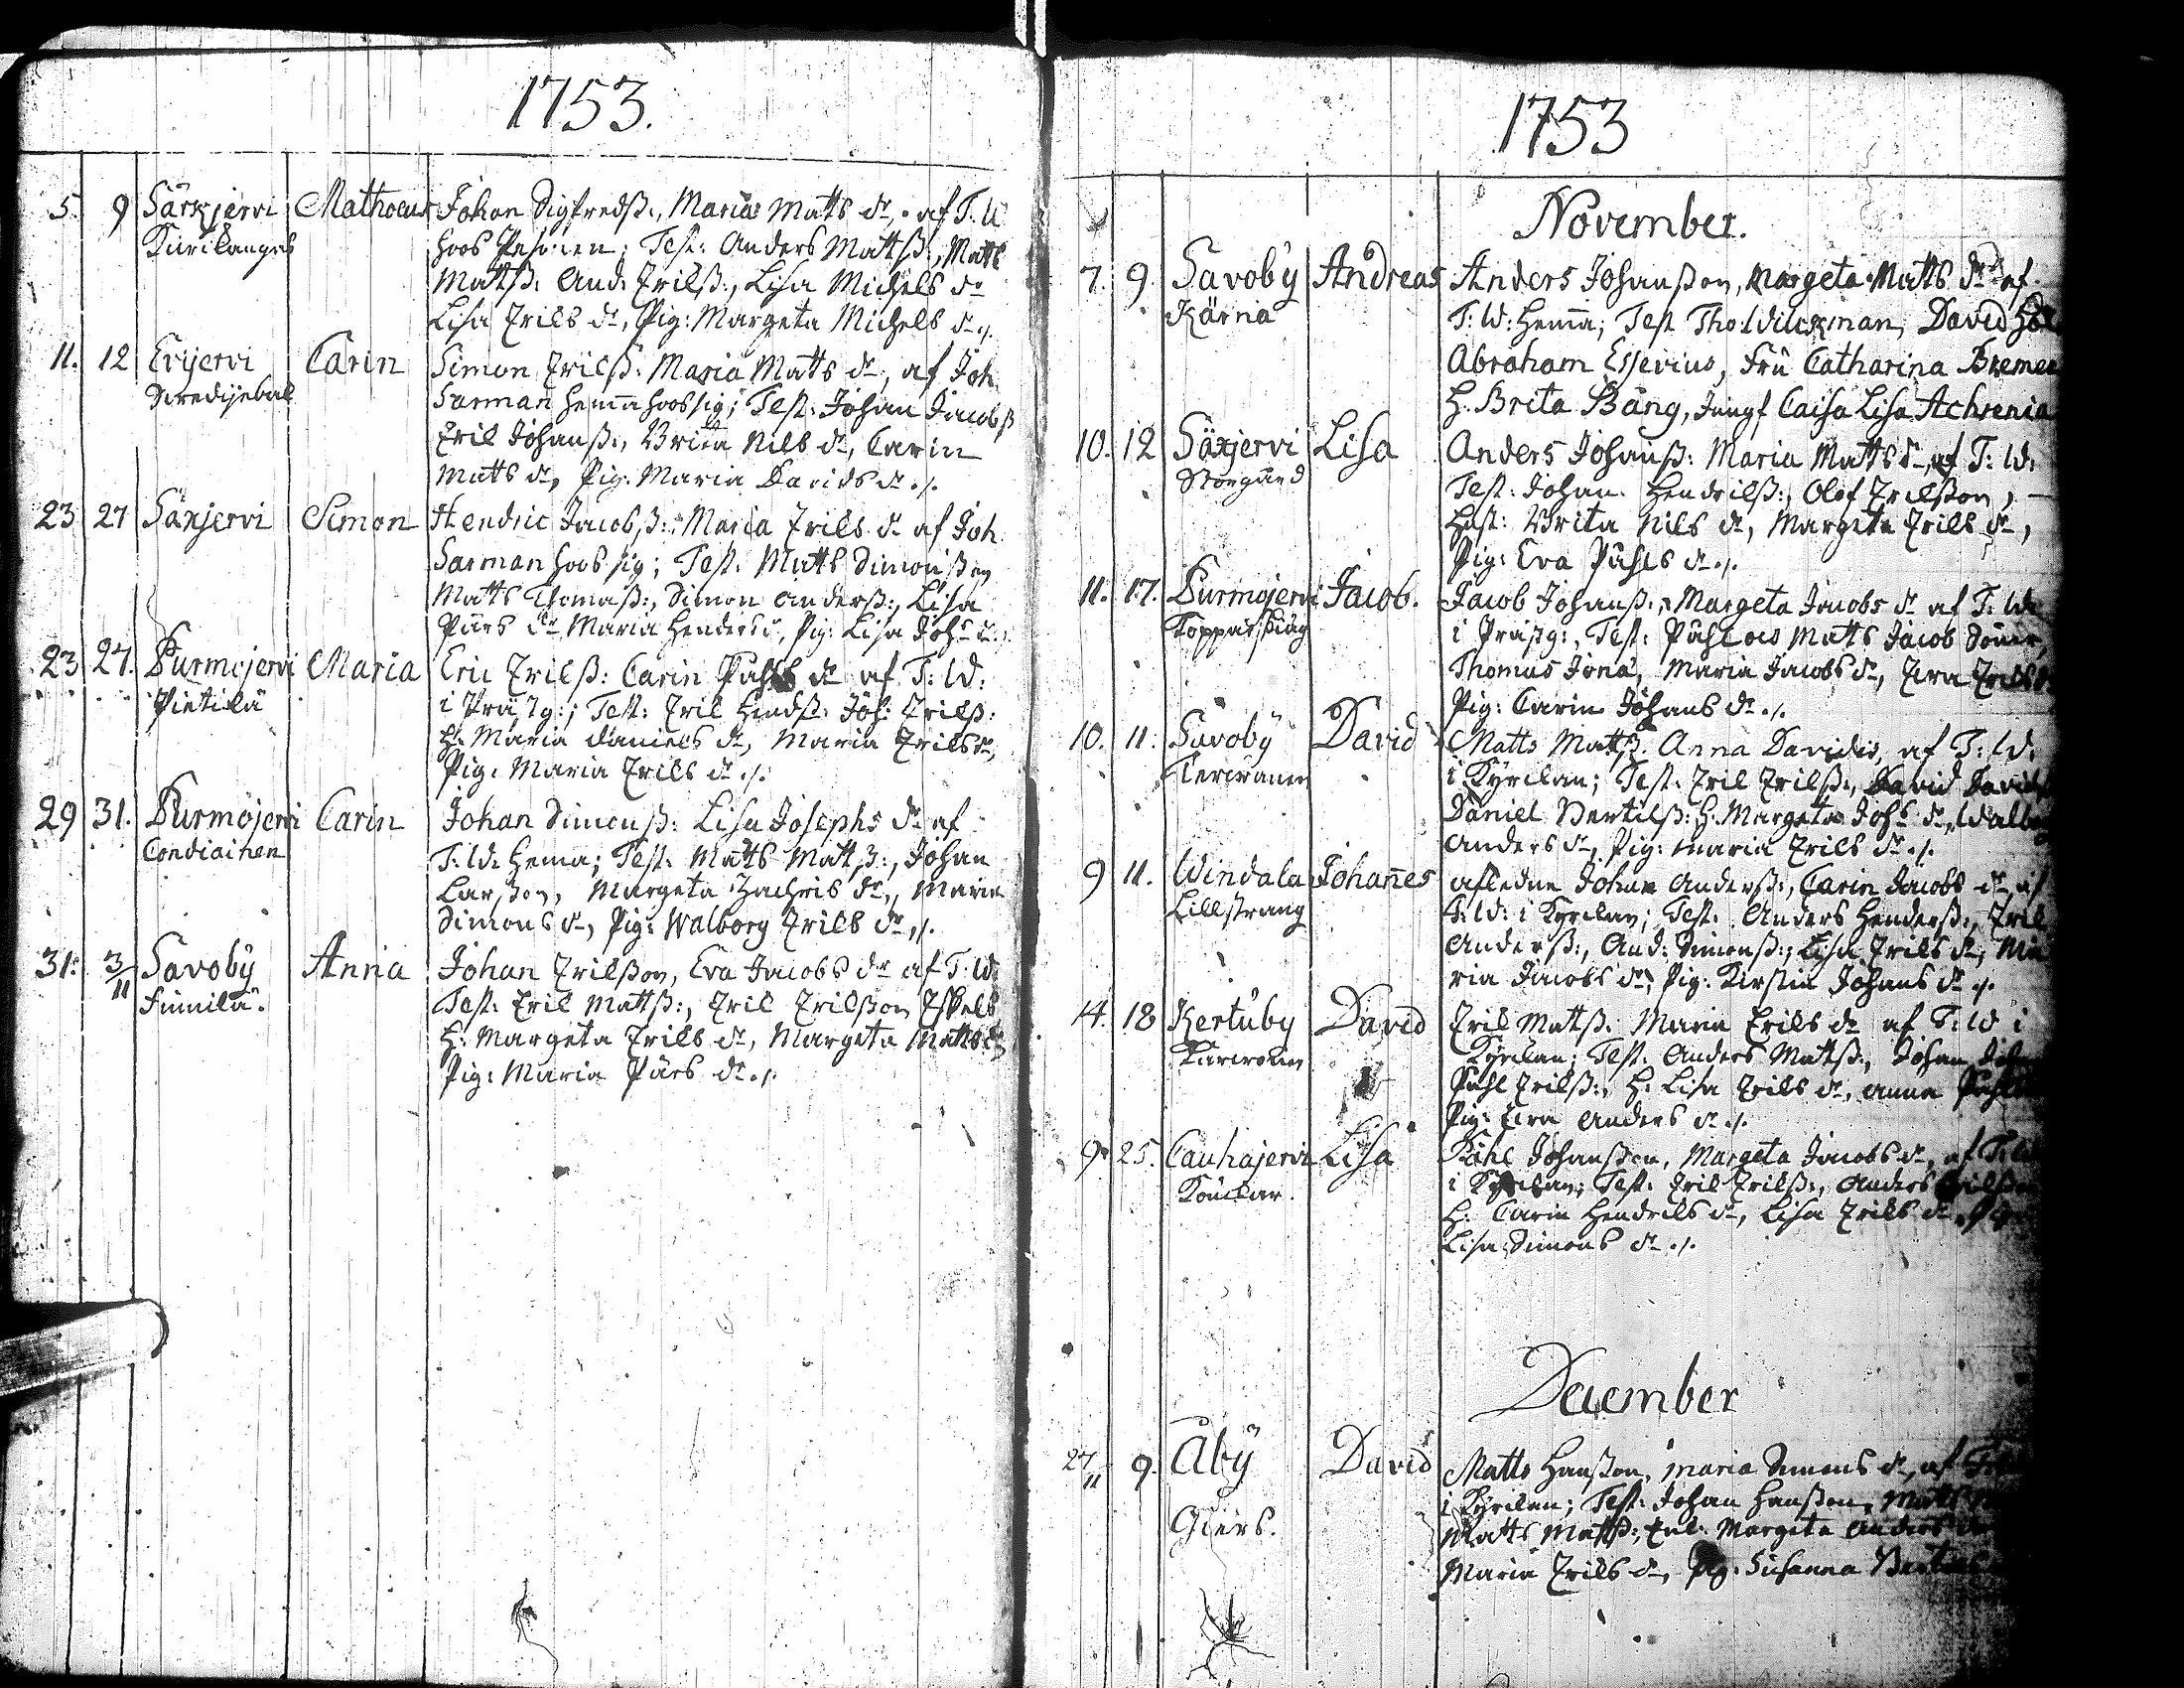 1753.
5. 9 Särkjervi Mathaeus Johan Sigfredsß:, Maria Matts dr, af T. W
Kurilanges hoos Pesonen; Test: Anders Mattsß:, Matts
Mattsß: And: Erikß:, Lisa Michels dr
Lisa Eriks dr, Pig: Margeta Michels dr ./.
11. 12 Evijervi Carin Simon Erikß: Maria Matts dr, af Joh
Sarman hema hoos sig; Test: Johan Jacobß
Erik Johansß:, Brita Nils dr, Carin
Matts dr, Pig: Maria Davids dr ./.
23 27 Säxjervi Simon Hendric Jacobß: Maria Eriks dr af Joh
Sarman hoos sig; Test: Matts Simonßon
Matts Thomasß:, Simon Andersß:, Lisa
Pärs dr, Maria Henders dr, Pig: Lisa Johs dr
23 27. Purmojervi Maria Eric Erikß: Carin Påhls dr af T: W:
Pietilä i Prästg:; Test: Erik Hendß: Joh: Erikß:
H: Maria Daniels dr, Maria Eriks dr,
Pig: Maria Eriks dr ./.
29 31. Purmojervi Carin Johan Simonsß: Lisa Josephs dr af
Condiainen T: W: hema; Test: Matts Mattsß:, Johan
Larßon, Margeta Zachris dr, Maria
Simons dr, Pig: Walborg Eriks dr ./.
31: 3/11 Savoby Anna Johan Erikßon, Eva Jacobs dr af T: W:
Finnilä. Test: Erik Mattsß:, Erik Erikßon
H: Margeta Eriks dr, Margeta Matts dr
Pig: Maria Pärs dr ./.
1753
November.
7. 9. Savoby Andreas Anders Johanßon, Margeta Matts dr af
Kärnä T: W: hema; Test Tho: Wilckman, David
Abraham Essevius, Fru Catharina Bremer
H. Brita Bång, Jungf Caisa Lisa Achrenia
10. 12 Säxjervi Lisa Anders Johansß: Maria Matts dr, af T: W:
Storgård Test: Johan Hendrikß:, Olof Erikßon,
Hust: Brita Nils dr, Margeta Eriks dr,
Pig: Eva Påhls dr ./.
11. 17. Purmojervi Jacob. Jacob Johansß:, Margeta Jacobs dr af T: W:
i Prästg:, Test: Påhl oct Matts Jacob Söner,
Thomas Jona, Maria Jacobs dr, Eva Eriks dr
Pig: Carin Johans dr ./.
10. 11. Savoby David Matts Mattsß. Anna Davidis, af T: W:
i Kyrckan; Test: Erik Erikß:, David Davids
Daniel Bertilß: H: Margeta Johs dr, Walbor
Anders dr, Pig: Maria Eriks dr ./.
9 11. Windala Johannes afledne Johan Andersß:, Carin Jacobs dr af
Lillstrang T: W: i Kyrckan; Test: Anders Hendersß:, Erik
Andersß:, And: Simonsß:, Lisa Eriks dr, Ma
ria Jacobs dr, Pig: Kirstin Johans dr ./.
14. 18 Kertuby David Erik Mattsß: Maria Eriks dr af T: W i
Kyrckan; Test: Anders Mattsß:, Johan
Påhl Erikß:, H: Lisa Eriks dr, Anna Påhls
Pig: Eva Anders dr ./.
9. 25. Cauhajervi Lisa Påhl Johanßon, Margeta Jacobs dr, af T: W
i Kyrckan; Test: Erik Erikß:, Anders Erikßon
H: Carin Hendriks dr, Lisa Eriks dr, Pig
Lisa Simons dr ./.
December
27/11 9. Åby David Matts Hanßon, Maria Simons dr, af T:
Giers. i Kyrckan; Test: Johan Hanßon, Matts
Matts Mattsß:, Margeta Anders dr
Maria Eriks dr, Pig: Susanna